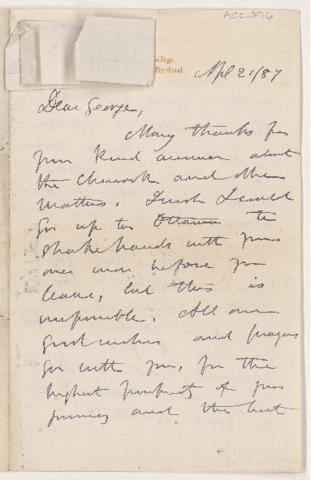 ACC.576
Apl 21/87
Dear George,
Many thanks for
your kind answer about
the Chinook and other
matters. I wish I could
go up to Ottawa to
shake hands with you
once more before you
leave, but this is
impossible. All our
good wishes and prayers
go with you, for the
highest prosperity of your
journey and the best